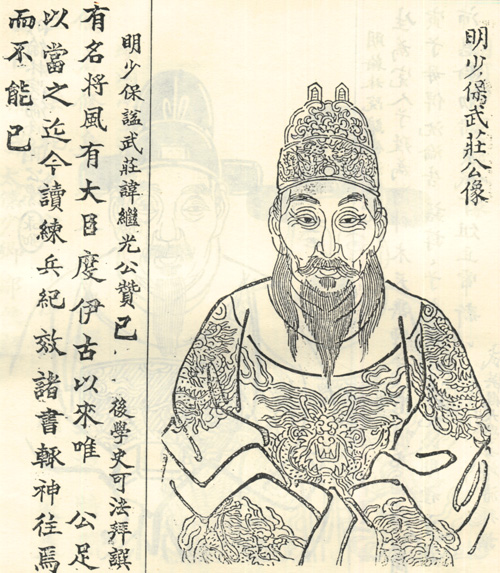 明少保武莊公像
明少保謚武莊諱繼光公贊已 後學史可法拜譔
有名将風有大臣度伊古以來唯 公足
以當之迄今讀練兵紀效諸書輙神往焉
而不能已